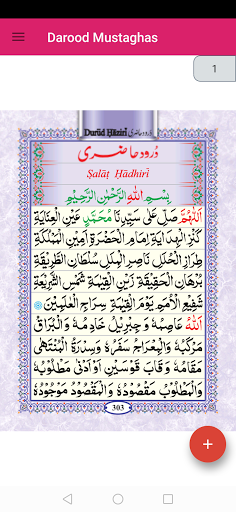 Darood Mustaghas
1
Durūd Ḥāẓirī درود حاضری
دُرود حاضری
Ṣalāṭ Ḥādhirī
بِسْمِ اللهِ الرَّحْمٰنِ الرَّحِيْمِ
اَللّٰهُمَّ صَلِّ عَلٰى سَيِّدِنَا مُحَمَّدٍ عَيْنِ الْعِنَايَةِ
كَنْزِ الْهِدَايَةِ اِمَامِ الْحَضْرَةِ اَمِيْنِ الْمَمْلَكَةِ
طِرَازِ الْحُلَلِ نَاصِرِ الْمِلَلِ سُلْطَانِ الطَّرِيْقَةِ
بُرْهَانِ الْحَقِيْقَةِ زَيْنِ الْقِيٰمَةِ شَمْسِ الشَّرِيْعَةِ
شَفِيْعِ الْاُمَمِ يَوْمَ الْقِيٰمَةِ سِرَاجِ الْعٰلَمِيْنَ
اَللهُ عَاصِمُهٗ وَجِبْرِيْلُ خَادِمُهٗ وَالْبُرَاقُ
مَرْكَبُهٗ وَالْمِعْرَاجُ سَفَرُهٗ وَسِدْرَةُ الْمُنْتَهٰى
مَقَامُهٗ وَقَابَ قَوْسَيْنِ اَوْ اَدْنٰى مَطْلُوْبُهٗ
وَالْمَطْلُوْبُ مَقْصُوْدُهٗ وَالْمَقْصُوْدُ مَوْجُوْدُهٗ
303
+